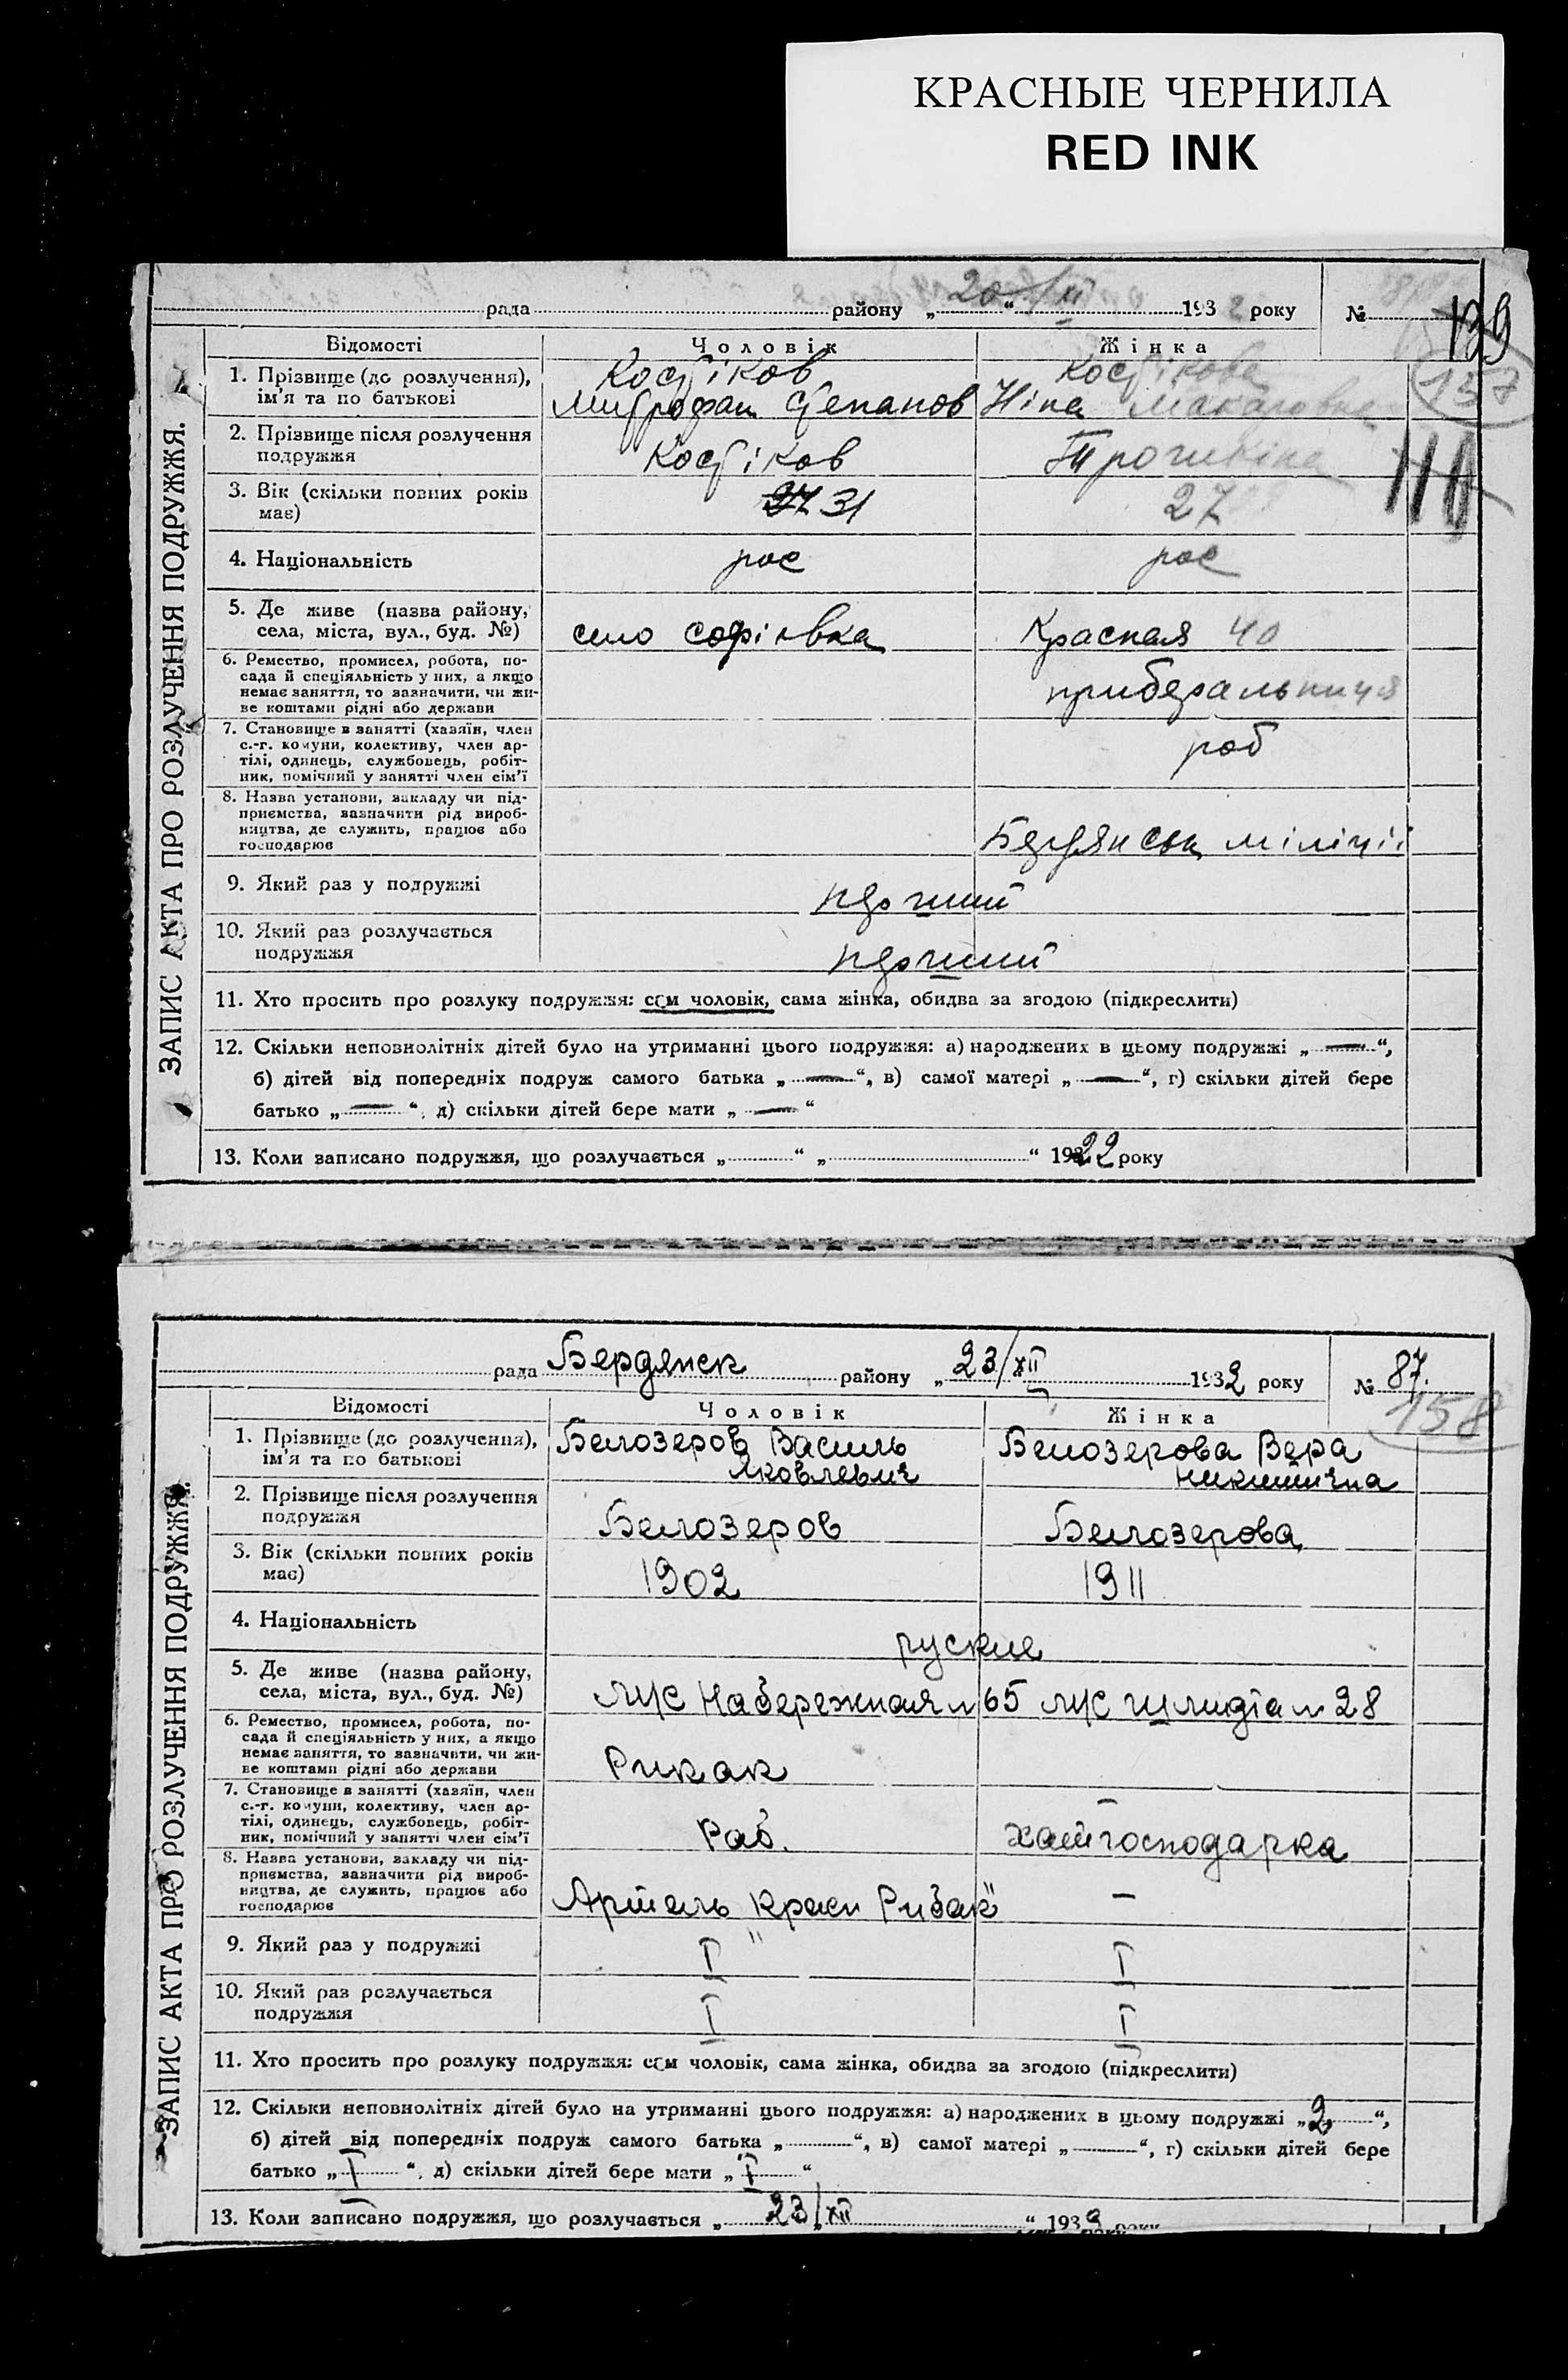 КРАСНЫЕ ЧЕРНИЛА
RED INK
ЗАПИС АКТА ПРО РОЗЛУЧЕННЯ ПОДРУЖЖЯ.
рада района „20“ 1932 року № 139
157
Відомості Чоловік Жінка
1. Прізвище (до розлучення), Костіков Костікова
ім'я та по батькові Митрофан Степанов Ніна Макаровна
2. Прізвище після розлучення
подружжя Костіков
3. Вік (скільки повних років
має) 27 31 27
4. Національність рос рос
5. Де живе (назва району,
села, міста, вул., буд. №) село Софіївка Красная 40
6. Ремество, промисел, робота, по-
сада й спеціяльність у них, а якщо
немає заняття, то зазначити, чи жи-
ве коштами рідні або держави прибєральниця
7. Становище в занятті (хазяїн, член
с.-г. комуни, колективу, член ар-
тілі, одинець, службовець, робіт-
ник, помічний у занятті член сім'ї роб
8. Назва установи, закладу чи під-
приємства, зазначити рід вироб-
ництва, де служить, працює або
господарює Бердянськ міліції
9. Який раз у подружжі перший
10. Який раз розлучається
подружжя перший
11. Хто просить про розлуку подружжя: сам чоловік, сама жінка, обидва за згодою (підкреслити)
12. Скільки неповнолітніх дітей було на утриманні цього подружжя: а) народжених в цьому подружжі „—“,
б) дітей від попередніх подруж самого батька „—“, в) самої матері „—“, г) скільки дітей бере
батько „—“, д) скільки дітей бере мати „—“
13. Коли записано подружжя, що розлучається „ “ „ “ 1922 року
ЗАПИС АКТА ПРО РОЗЛУЧЕННЯ ПОДРУЖЖЯ.
рада Бердянск району „23/XII 1932 року № 87.
158
Відомості Чоловік Жінка
1. Прізвище (до розлучення), Белозеров Василь Белозерова Вера
ім'я та по батькові Яковлевич Никитична
2. Прізвище після розлучення
подружжя Белозеров Белозерова
3. Вік (скільки повних років
має) 1902 1911
4. Національність руские
5. Де живе (назва району,
села, міста, вул., буд. №) Набережная 65 28
6. Ремество, промисел, робота, по-
сада й спеціяльність у них, а якщо
немає заняття, то зазначити, чи жи-
ве коштами рідні або держави
7. Становище в занятті (хазяїн, член
с.-г. комуни, колективу, член ар-
тілі, одинець, службовець, робіт-
ник, помічний у занятті член сім'ї Раб. хатгосподарка
8. Назва установи, закладу чи під-
приємства, зазначити рід вироб-
ництва, де служить, працює або
господарює Артель „Красн Рибак“ —
9. Який раз у подружжі I I
10. Який раз розлучається
подружжя I I
11. Хто просить про розлуку подружжя: сам чоловік, сама жінка, обидва за згодою (підкреслити)
12. Скільки неповнолітніх дітей було на утриманні цього подружжя: а) народжених в цьому подружжі „2“,
б) дітей від попередніх подруж самого батька „ “, в) самої матері „ “, г) скільки дітей бере
батько „I“, д) скільки дітей бере мати „I“
13. Коли записано подружжя, що розлучається „23/XII “ 1932 року